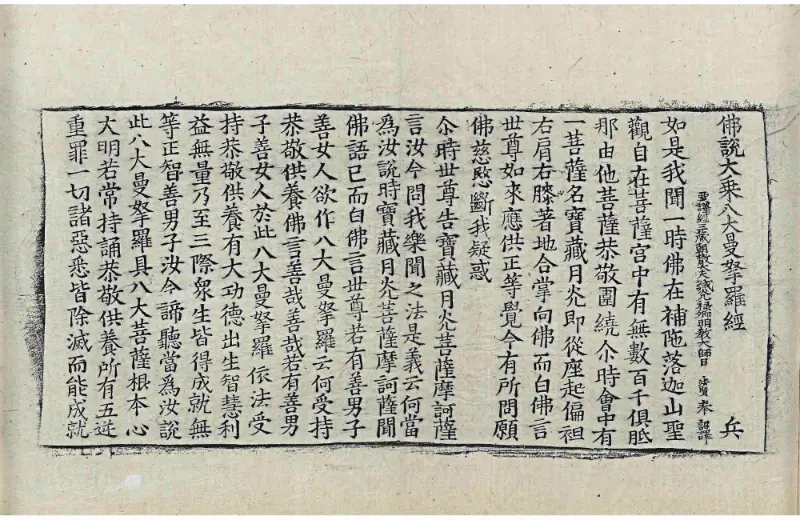 佛說大乗八大曼拏羅經 兵
譯經三藏朝散大夫試光祿卿明教大師臣 法賢 奉 詔譯
如是我聞一時佛在補陁落迦山聖
觀自在菩薩宫中有無數百千俱胝
那由他菩薩恭敬圍繞尒時會中有
一菩薩名寶藏月光即從座起偏袒
右肩右膝著地合掌向佛而白佛言
世尊如來應供正等覺今有所問願
佛慈愍斷我疑惑
尒時世尊告寶藏月光菩薩摩訶薩
言汝今問我樂聞之法是義云何當
爲汝說時寶藏月光菩薩摩訶薩聞
佛語已而白佛言世尊若有善男子
善女人欲作八大曼拏羅云何受持
恭敬供養佛言善哉善哉若有善男
子善女人於此八大曼拏羅依法受
持恭敬供養有大功德出生智慧利
益無量乃至三際衆生皆得成就無
等正智善男子汝今諦聽當爲汝說
此八大曼拏羅具八大菩薩根本心
大明若常持誦恭敬供養所有五逆
重罪一切諸惡悉皆除滅而能成就